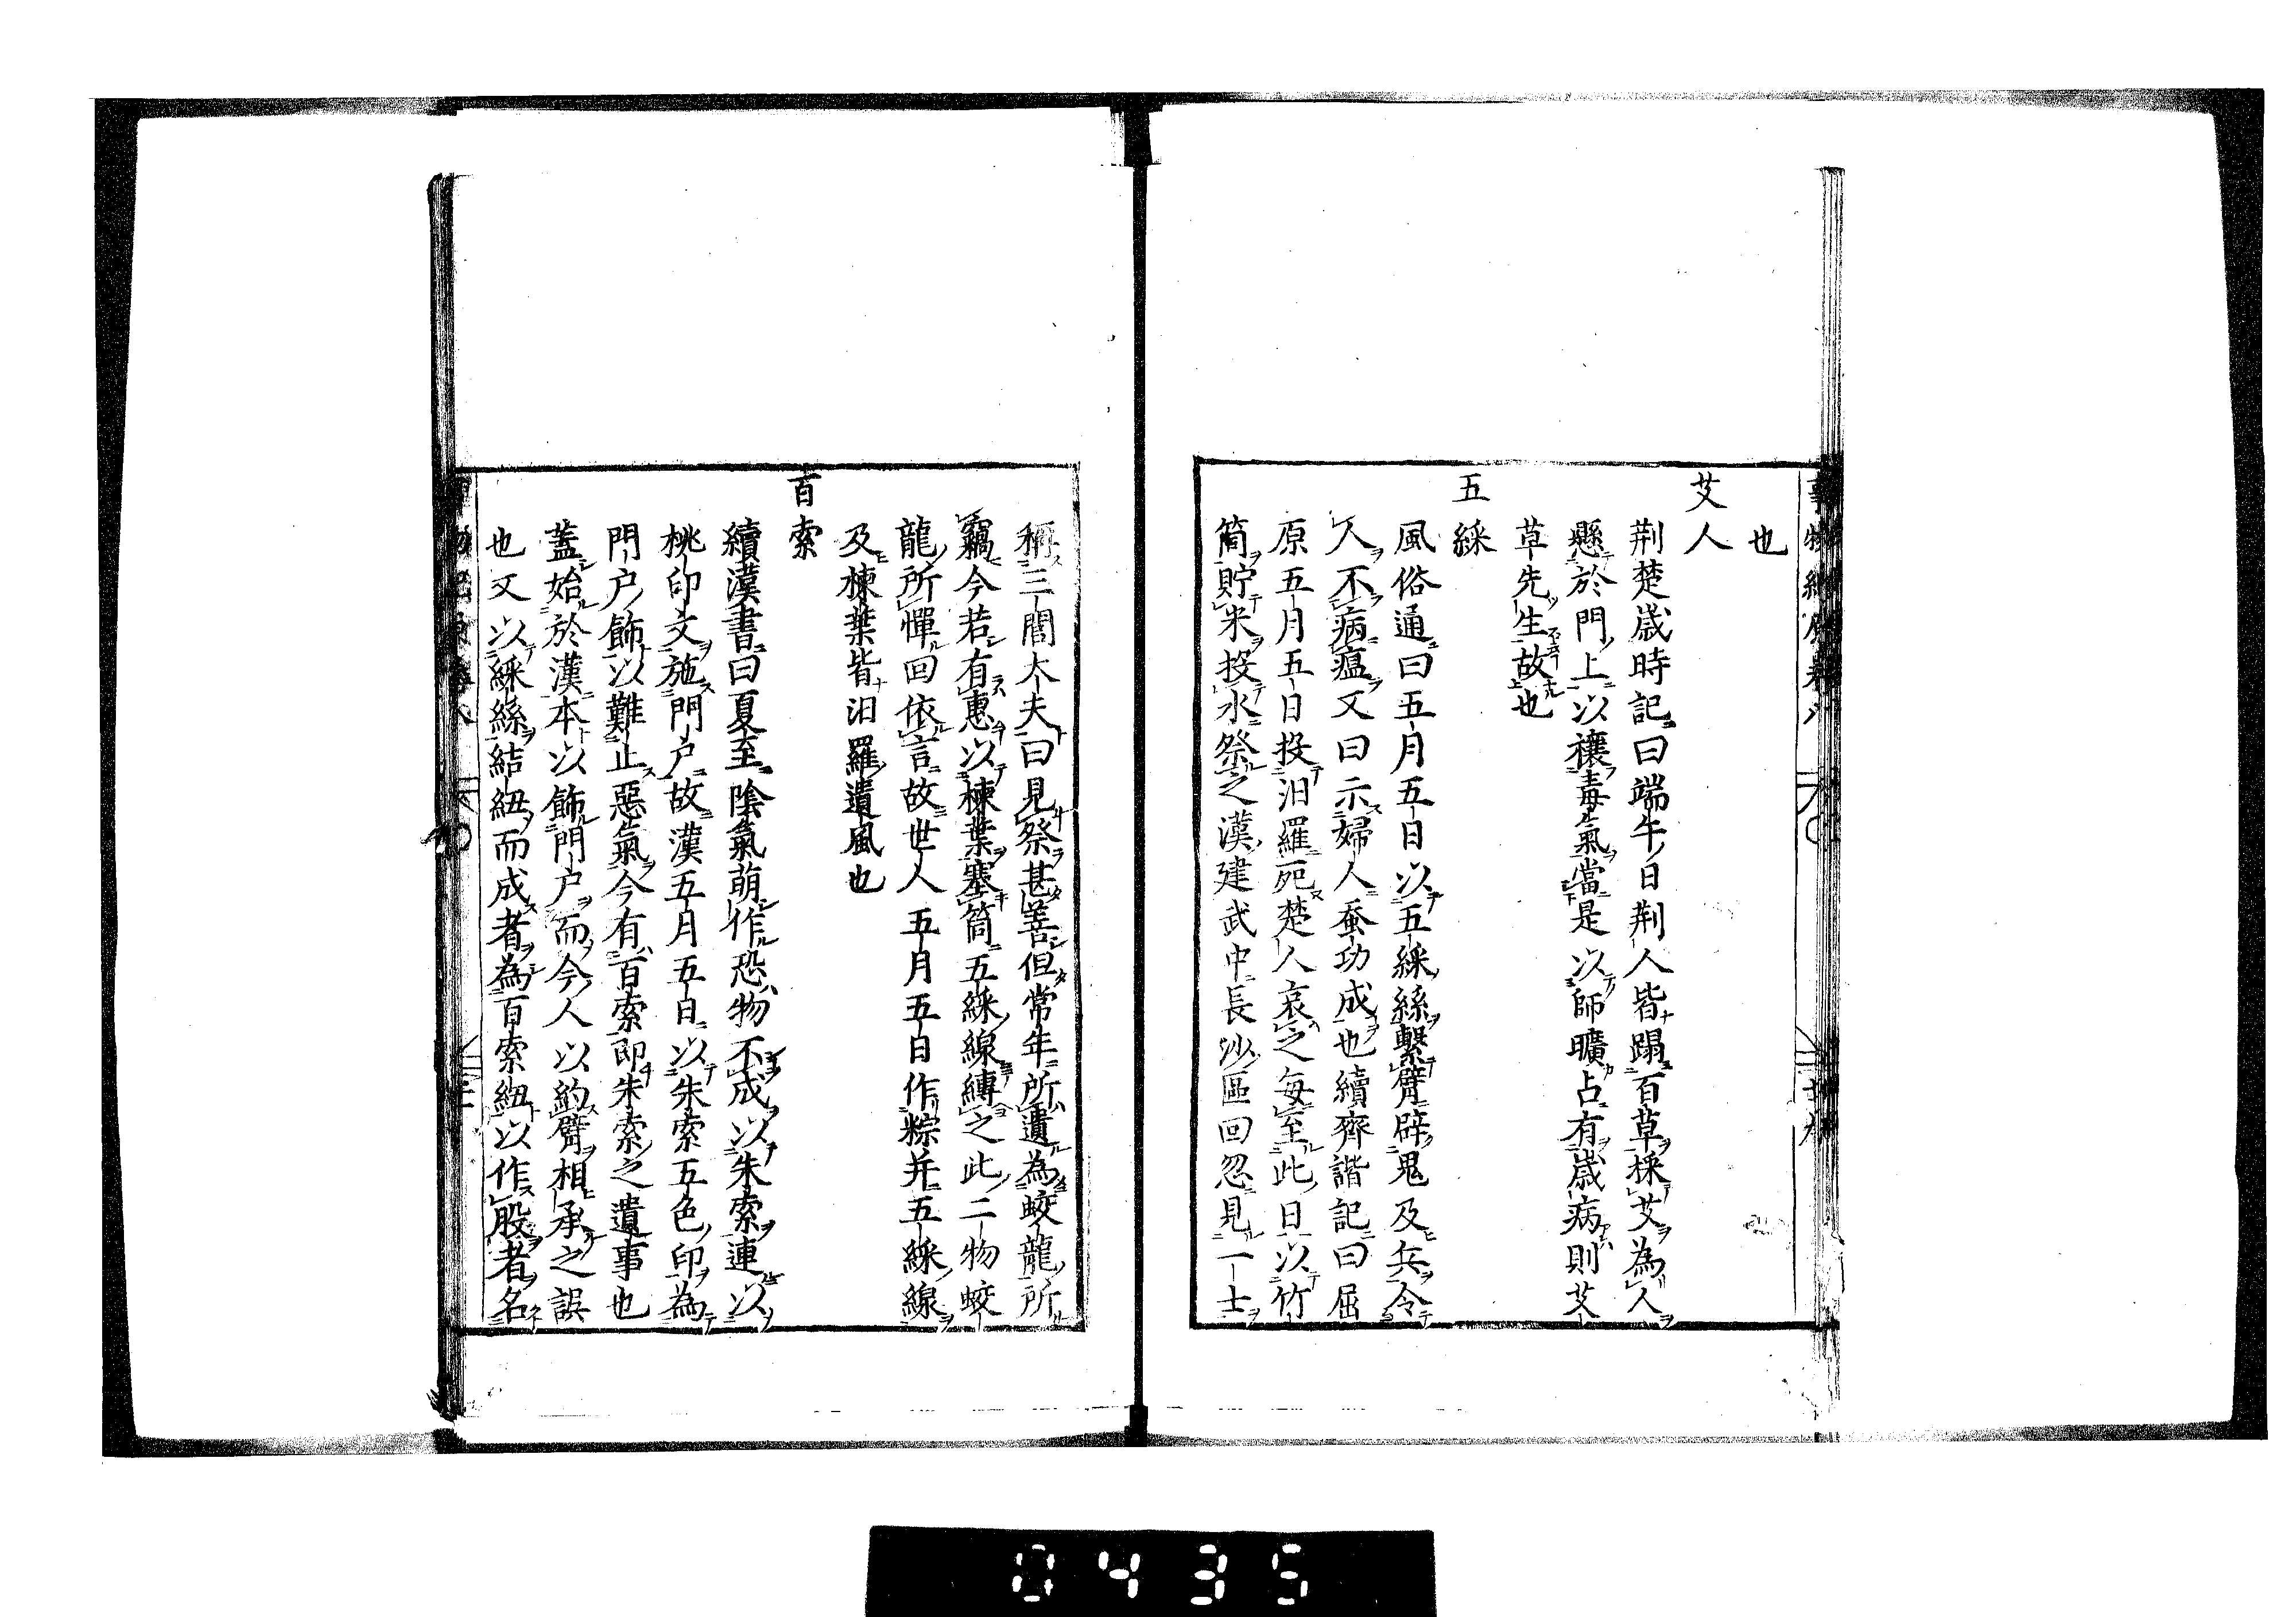 也
艾人
荆楚歲時記曰端午日荆人皆蹋百草採艾為人
懸於門上以禳毒氣當是以師曠占有歲病則艾
草先生故也
五綵
風俗通曰五月五日以五綵絲繫臂辟鬼及兵令
人不病瘟又曰示婦人蚕功成也續齊諧記曰屈
原五月五日投汨羅死楚人哀之每至此日以竹
筒貯米投水祭之漢建武中長沙區回忽見一士
稱三閭大夫曰見祭甚善但常年所遺為蛟龍所
竊今若有惠以楝葉塞筒五綵線縳之此二物蛟
龍所憚回依言故世人五月五日作粽并五綵線
及楝葉皆汨羅遺風也
百索
續漢書曰夏至陰氣萌作恐物不成以朱索連以
桃印文施門户故漢五月五日以朱索五色印為
門户飾以難止惡氣今有百索即朱索之遺事也
蓋始於漢本以飾門户而今人以約臂相承之誤
也又以綵絲結紐而成者為百索紐以作股者名
0435